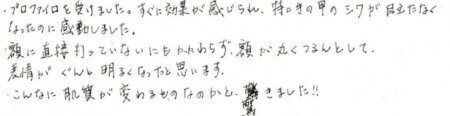 ・プロファイロを受けました。すぐに効果が感じられ、特に手の甲のシワが目立たなく
なったのに感動しました。
額に直接打っていないにもかかわらず、額が丸くつるんとして、
表情がぐんと明るくなったと思います。
・こんなに肌質が変わるものなのかと、驚きました!!